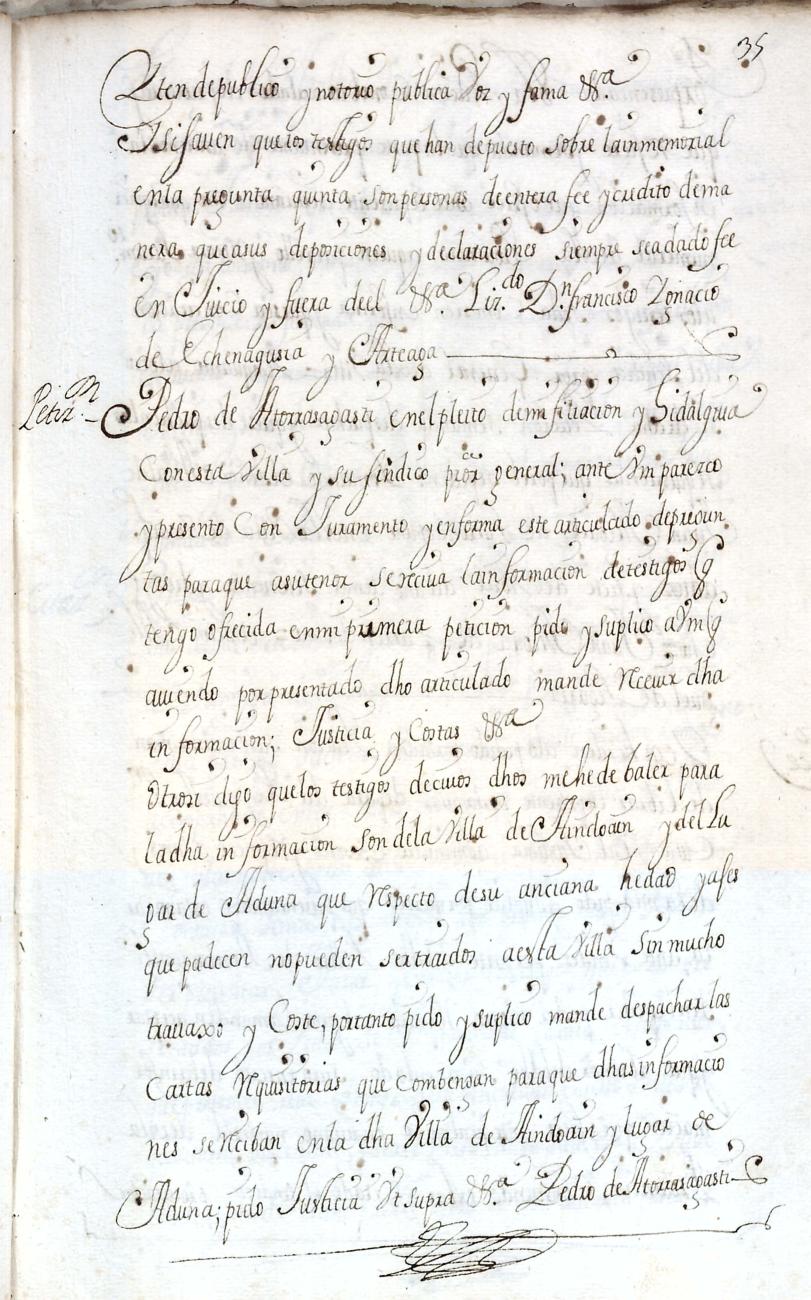 35
Yten de publico y notorio publica Voz y fama &ra.
Y si saven que los testigos que han depuesto sobre la inmemorial
en la pregunta quinta son personas de entera fee y credito de ma
nera que asus deposiciones y declaraciones siempre sea dado fee
en Juicio y fuera de el &ra. Liz.do Dn francisco Ygnacio
de Echenagusia y Arteaga
Petizon. Pedro de Atorrasagasti en el pleito de mi filiacion y Hidalguia
Con esta Villa y su sindico pror general; ante Vm parezco
y presento Con Juramento y en forma este articulado de pregun
tas para que a su tenor se reciva la informacion de testigos q
tengo ofrecida en mi primera peticion pido y suplico a Vm q
aviendo por presentado dho articulado mande Recevir dha
informacion; Justicia y Costas &ra
Otrosi digo que los testigos de cuios dhos me he de baler para
la dha informacion son de la Villa de Aindoain y del Lu
gar de Aduna que Respecto de su anciana hedad y ajes
que padecen no pueden ser traidos a esta Villa sin mucho
travaxo y Coste, por tanto pido y suplico mande despachar las
Cartas Requisitorias que Combengan para que dhas informacio
nes se Reciban en la dha Villa de Aindoain y lugar de
Aduna; pido Justicia Vt supra &ra. Pedro de Atorrasagasti